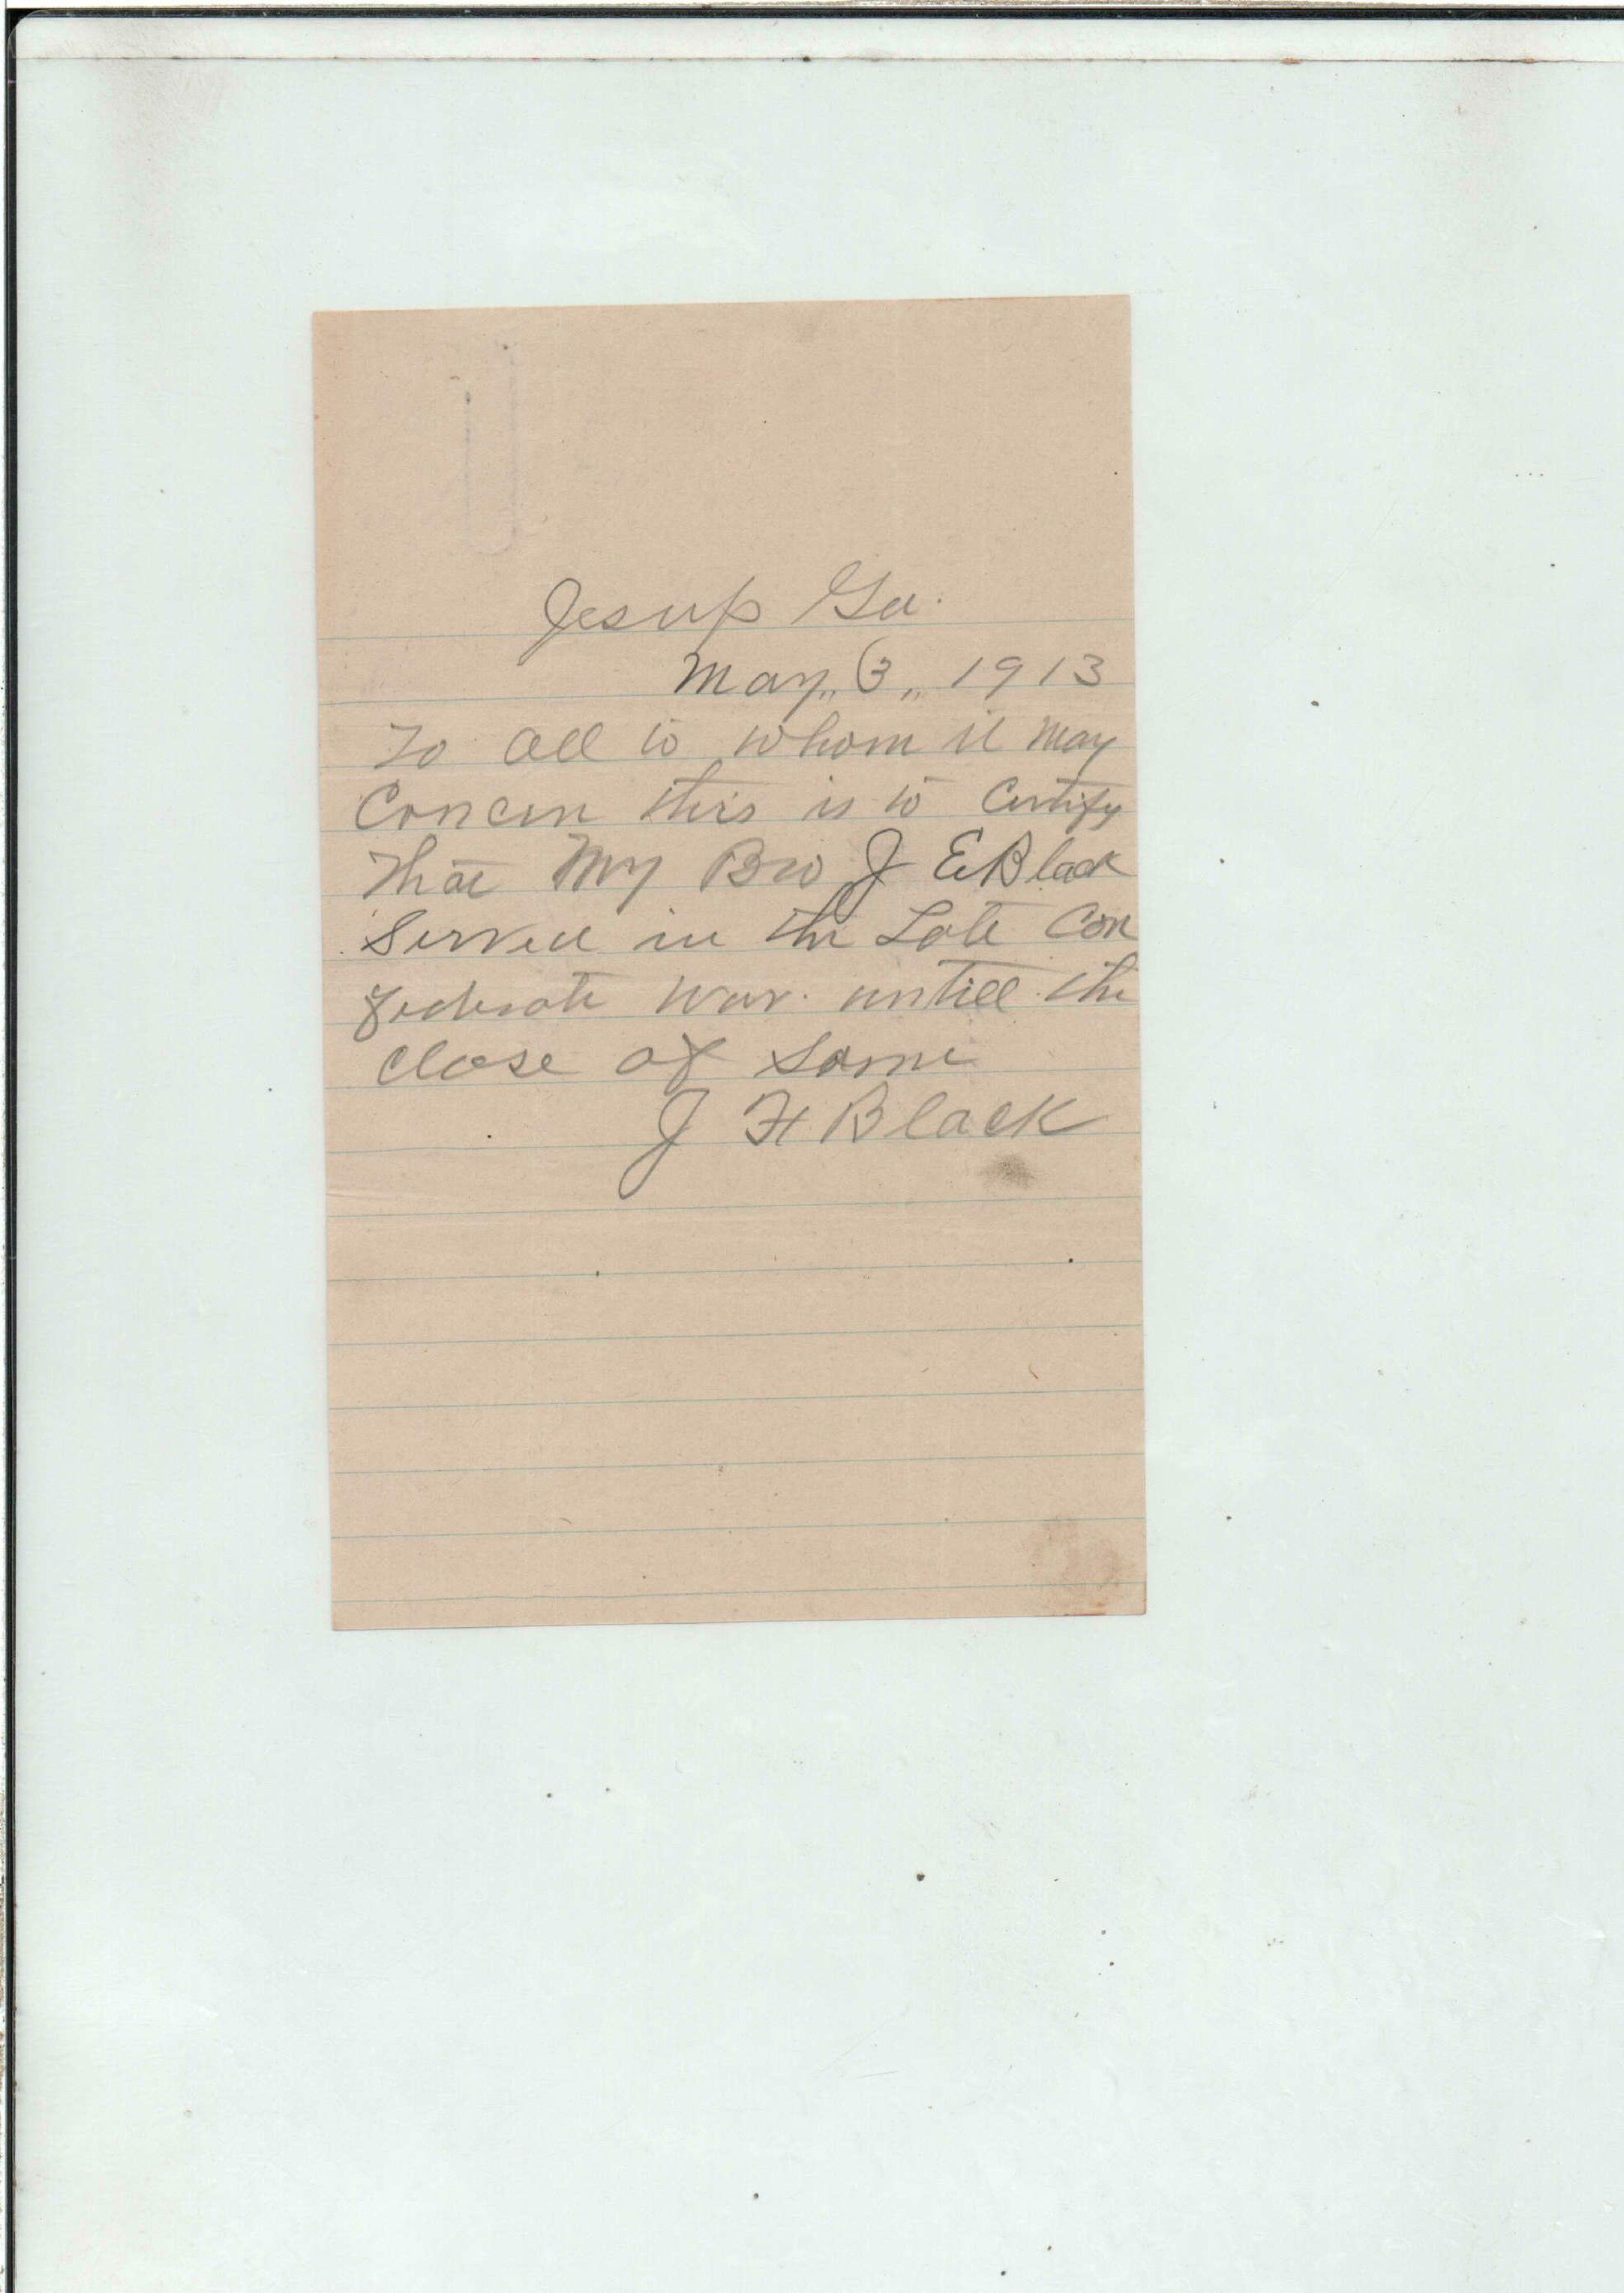 Jesup Ga.
May,, 3,, 1913
To all to whom it may
Concern this is to Certify
that My Bro J E Black
Served in the Late Con
federate war. untill the
close of Same
J H Black